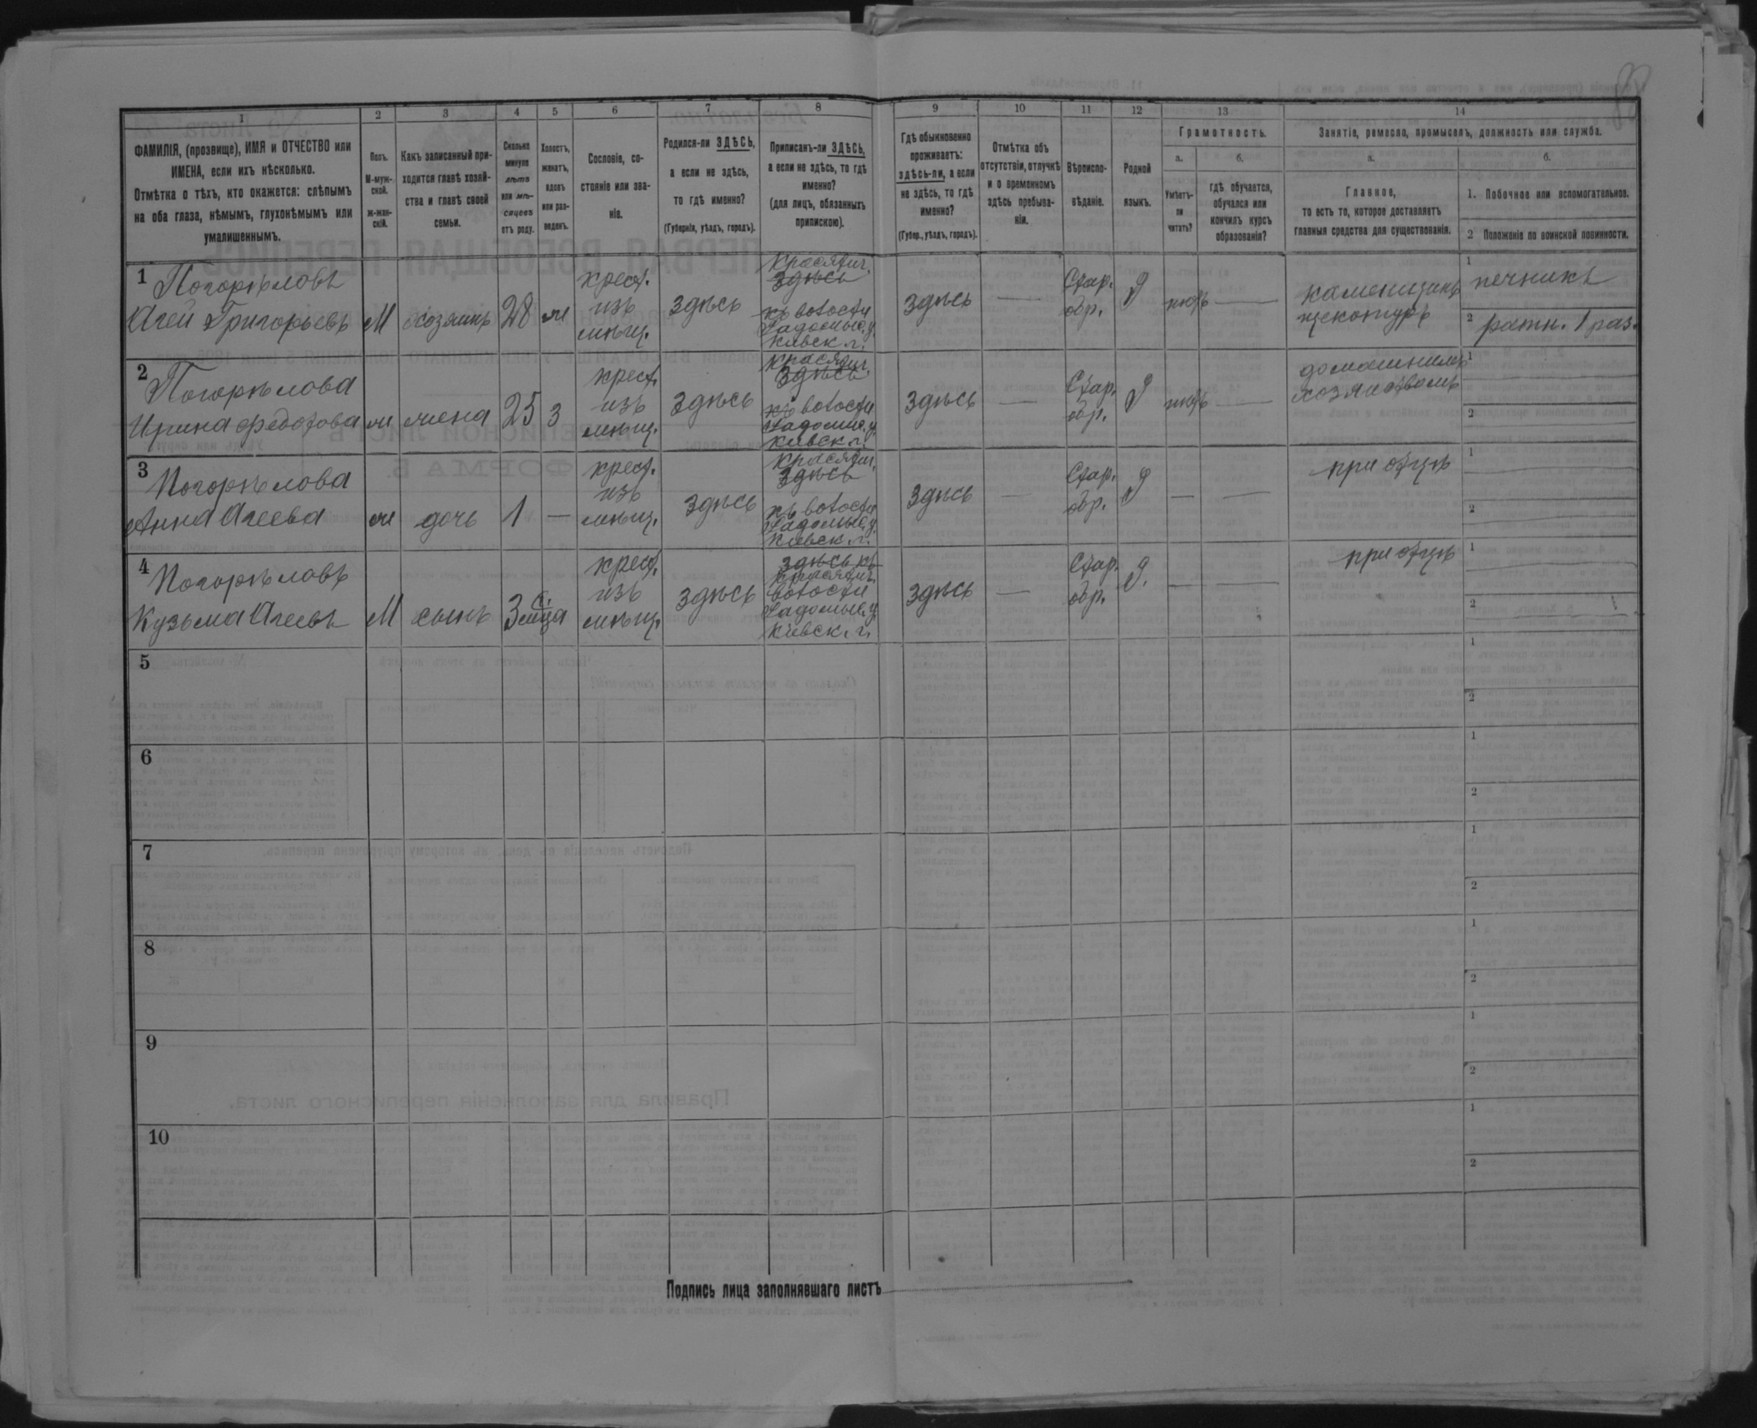 1
2
3
4
5
6
7
8
9
10
11
12
13
14
ФАМИЛІЯ, (прозвище), ИМЯ и ОТЧЕСТВО или
ИМЕНА, если ихъ нѣсколько.
Отмѣтка о тѣхъ, кто окажется: слѣпымъ
на оба глаза, нѣмымъ, глухонѣмымъ или
умалишеннымъ.
Полъ.
М-муж-
ской.
ж-жен-
скій.
Какъ записанный при-
ходится главѣ хозяй-
ства и главѣ своей
семьи.
Сколько
минуло
лѣтъ
или мѣ-
сяцевъ
отъ роду.
Холостъ,
женатъ,
вдовъ
или раз-
веденъ.
Сословіе, со-
стояніе или зва-
ніе.
Родился-ли ЗДѢСЬ,
а если не здѣсь,
то гдѣ именно?
(Губернія, уѣздъ, городъ).
Приписанъ-ли ЗДѢСЬ,
а если не здѣсь, то гдѣ
именно?
(для лицъ, обязанныхъ
припискою).
Гдѣ обыкновенно
проживаетъ:
здѣсь-ли, а если
не здѣсь, то гдѣ
именно?
(Губер., уѣздъ, городъ).
Отмѣтка объ
отсутствіи, отлучкѣ
и о временномъ
здѣсь пребыва-
ніи.
Вѣроиспо-
вѣданіе.
Родной
языкъ.
Грамотность.
а.
б.
Умѣетъ-
ли
читать?
гдѣ обучается,
обучался или
кончилъ курсъ
образованія?
Занятіе, ремесло, промыселъ, должность или служба.
а.
б.
Главное,
то есть то, которое доставляетъ
главныя средства для существованія.
1. Побочное или вспомогательное.
2 Положеніе по воинской повинности.
1 Погорѣловъ
Агей Григорьевъ
М
хозяинъ
28
ж
крест.
изъ
мѣщ.
здѣсь
Красятич.
здѣсь
волости
Радомыс. у.
Кіевск. г.
здѣсь
—
Стар.
обр.
нѣтъ
—
каменщикъ
щекотуръ
1 печникъ
2 ратн. 1 раз.
2 Погорѣлова
Ирина Федотова
ж
жена
25
з
крест.
изъ
мѣщ.
здѣсь
Красятич.
здѣсь
волости
Радомыс. у.
Кіевск. г.
здѣсь
—
Стар.
обр.
нѣтъ
—
домашнимъ
хозяйствомъ
1
2
3 Погорѣлова
Анна Агеева
ж
дочь
1
—
крест.
изъ
мѣщ.
здѣсь
Красятич.
здѣсь
волости
Радомыс. у.
Кіевск. г.
здѣсь
—
Стар.
обр.
—
—
при отцѣ
1
2
4 Погорѣловъ
Кузьма Агеевъ
М
сынъ
3 мѣца
крест.
изъ
мѣщ.
здѣсь
здѣсь къ
Красятич.
волости
Радомыс. у.
Кіевск. г.
здѣсь
—
Стар.
обр.
—
—
при отцѣ
1
2
5
1
2
6
1
2
7
1
2
8
1
2
9
1
2
10
1
2
Подпись лица заполнявшаго листъ